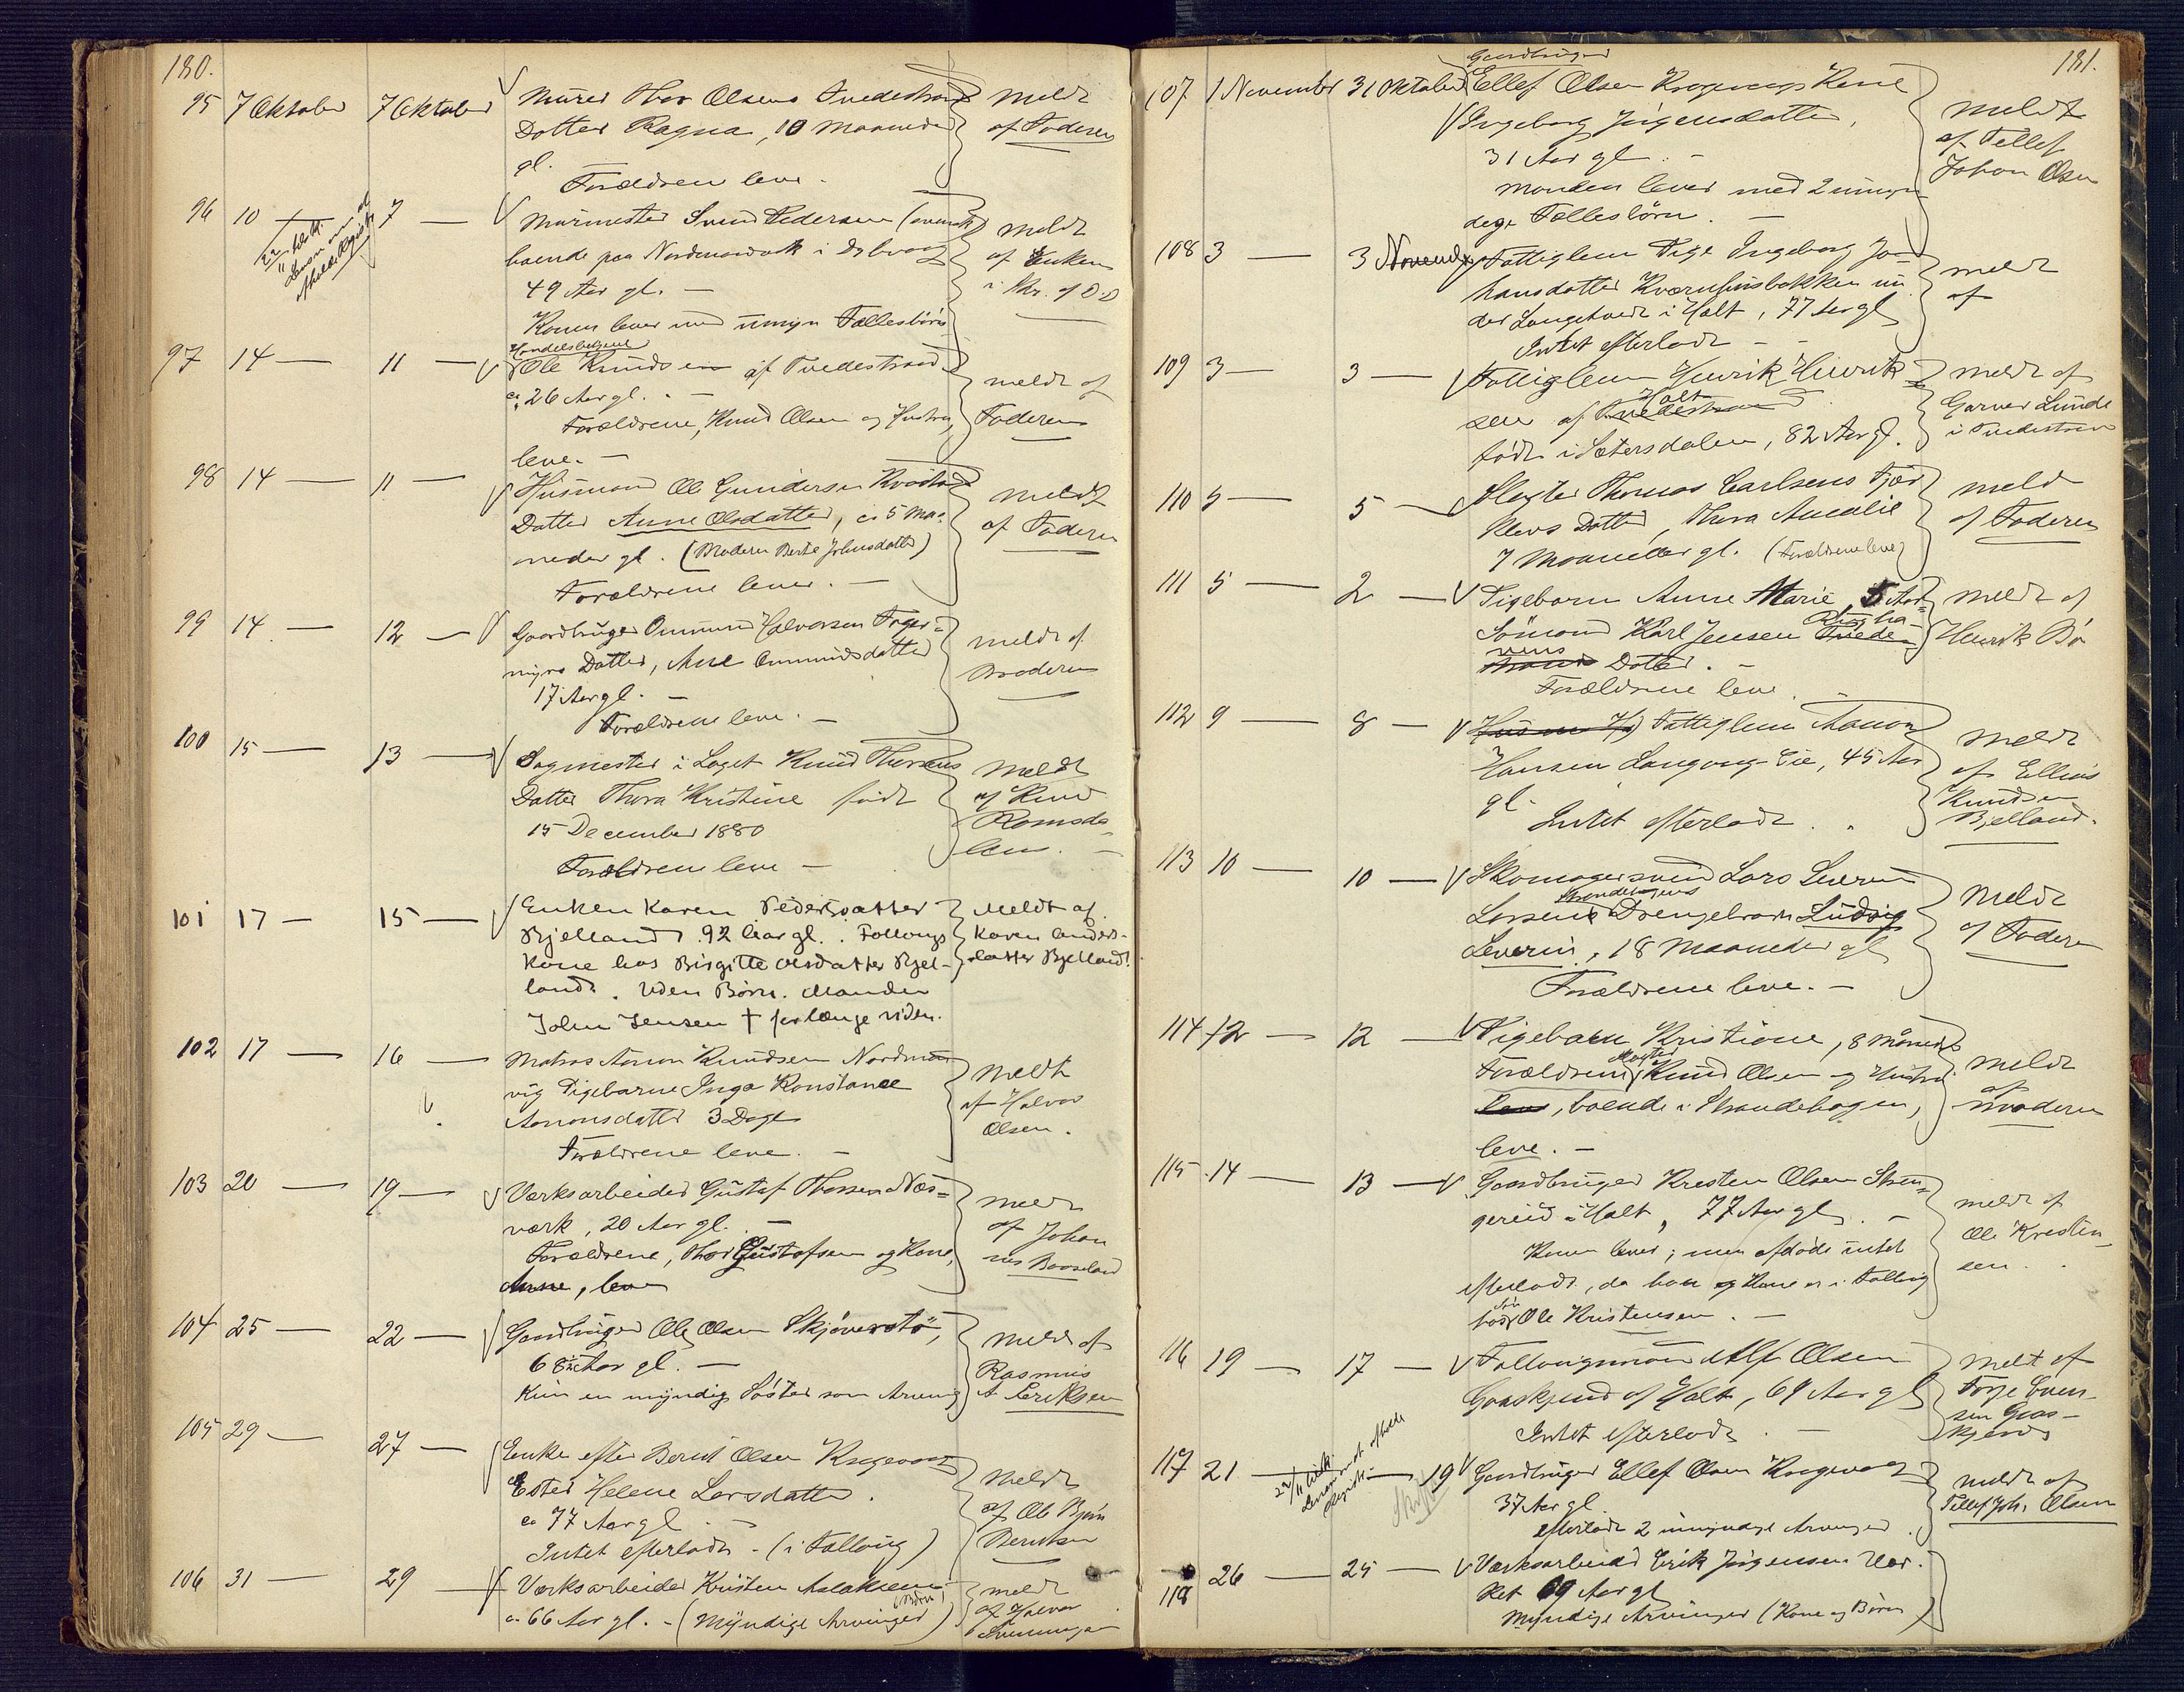 180.
95 7 Oktober 7 Oktober Murer Thor Olsens Tvedestrand
Datter Ragna, 10 Maaneder
gl.
Forældrene leve.
Meldt
af Faderen
96 10 — 7 — Murmester Svend Pedersen (svensk)
boende paa
49 Aar gl. —
Konen lever med umyn Fællesbørn
meldt
af Enken
97 14 — 11 — Handelsbetjent
Ole Knudsen af Tvedestrand
ca 26 Aar gl. —
Forældrene, Knud Olsen og Hustru,
leve. —
meldt af
Faderen
98 14 — 11 — Husmand Ole Gundersen
Datter Anne Olsdatter, ca 5 Maa-
neder gl. (Moderen Berte Johnsdatter)
Forældrene lever. —
Meldt
af Faderen
99 14 — 12 — Gaardbruger Ommund Halvorsen Foger=
myrs Datter, Ane Ommundsdatter
17 Aar gl. —
Forældrene leve. —
meldt af
Moderen
100 15 — 13 — Sagmester i Laget Knud
Datter Thora Kristine født
15 December 1880
Forældrene leve —
Meldt
af Knud
Romsda-
len. —
101 17 — 15 — Enken Karen Pedersdatter
Bjelland. 92 Aar gl. . Follougs
Kone hos Birgitte Olsdatter Bjel-
land. Uden Børn. Manden
John Jensen † for længe siden.
Meldt af
Karen Anders-
datter Bjelland.
102 17 — 16 — Matros Aanon Knudsen
vig Pigebarn Inga Konstance
Aanonsdatter 3 Dage
Forældrene leve. —
Meldt
af Halvor
Olsen.
103 20 — 19 — Værksarbeider Gustaf Thorsen Næs=
værk, 20 Aar gl. —
Forældrene, Thor Gustafsen og Kone,
Anne, leve
Meldt
af Johan
nes Baaseland
104 25 — 22 — Gaardbruger Ole Olsen Skjøverstø,
68 Aar gl. —
Kun en myndig Søster som Arving
Meldt af
Rasmus
A Eriksen
105 29 — 27 — Enke efter Berent Olsen Kragevaag
Ester Helene Larsdatter.
ca 77 Aar gl —
Intet efterladt - (i Folloug)
Meldt
af Ole Bjørn
Berntsen
106 31 — 29 — Værksarbeider Kristen Aslaksen
ca 66 Aar gl. - (Myndige Arvinger (Børn))
meldt
af Halvor
181.
107 1 November 31 Oktober Gaardbruger
Ellef Olsen Kragevaags Kone
Ingeborg Jørgensdatter,
31 Aar gl. —
Manden lever med 2 umyn-
dige Fællesbørn. —
Meldt
af Tellef
Johan Olsen
108 3 — 3 Novemb Fattiglem Pige Ingeborg Jo-
hansdatter Kværnhusbakken un
der Langetvedt i Holt, 77 Aar gl
Intet efterladt —
meldt
af
109 3 — 3 — Fattiglem Henrik Henrik-
sen af Tvedestrand Holt
født i Sætersdalen, 82 Aar gl.
meldt af
Garver Lunde
i Tvedestrand
110 5 — 5 — Slagter Thomas Carlsens Fjær
Klevs Datter, Thora Amalie
7 Maaneder gl. (Forældrene leve)
meldt
af Faderen
111 5 — 2 — Pigebarn Anne Marie 5 Aar
Sømand Karl Jensen Tvede-
strand Datter. —
Forældrene leve. —
Meldt af
Henrik Bø
112 9 — 8 — Fattiglem Aanon
Hansen Langang Eie, 45 Aar
gl.
Intet efterladt.
Meldt
af Ellius
Knudsen
Bjelland.
113 10 — 10 — Skomagersvend Lars Severin
Larsens Strandehagens Drengebarn Ludvig
Severin, 18 Maaneder gl
Forældrene leve. —
Meldt
af Faderen
114 12 — 12 — Pigebarn Kristine, 8 Måneder
Forældrene, Knud Olsen og Hustru
leve, boende i Strandehagen,
leve. —
meldt
af
Moderen
115 14 — 13 — Gaardbruger Kresten Olsen Stren-
gereid i Holt, 77 Aar gl. —
Konen lever; men afdøde intet
efterladt, da han og Kone er i Follog
hos Søn Ole Kristensen. —
meldt af
Ole Kresten-
sen.
116 19 — 17 — Follougsmand Alf Olsen
Graaskjend af Holt, 69 Aar gl
Intet efterladt. —
Meldt af
Terje Even-
sen Graa-
skjend
117 21 — 19 Gaardbruger Ellef Olsen Kragevaag
37 Aar gl.
efterladt 2 umyndige Arvinger.
meldt af
Tellef Joh. Olsen
118 26 — 25 — Værksarbeider Erik Jørgensen Vær-
ket 69 Aar gl
Myndige Arvinger (Kone og Børn)